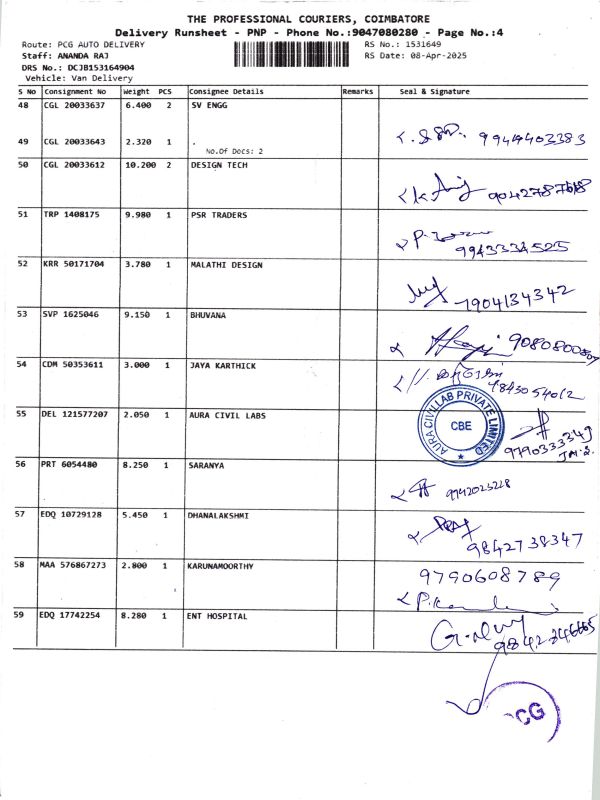 THE PROFESSIONAL COURIERS, COIMBATORE
Delivery Runsheet - PNP - Phone No.:9047080280 - Page No.:4
Route: PCG AUTO DELIVERY RS No.: 1531649
Staff: ANANDA RAJ RS Date: 08-Apr-2025
DRS No.: DCJB153164904
Vehicle: Van Delivery
S No Consignment No Weight PCS Consignee Details Remarks Seal & Signature
48 CGL 20033637 6.400 2 SV ENGG
49 CGL 20033643 2.320 1 .
No.Of Docs: 2
9944940 3383
50 CGL 20033612 10.200 2 DESIGN TECH
51 TRP 1408175 9.980 1 PSR TRADERS
9943334525
52 KRR 50171704 3.780 1 MALATHI DESIGN
7904134342
53 SVP 1625046 9.150 1 BHUVANA
54 CDM 50353611 3.000 1 JAYA KARTHICK
9843054012
55 DEL 121577207 2.050 1 AURA CIVIL LABS
AURA CIVIL LAB PRIVATE LIMITED
CBE
56 PRT 6054480 8.250 1 SARANYA
57 EDQ 10729128 5.450 1 DHANALAKSHMI
9842738347
58 MAA 576867273 2.800 1 KARUNAMOORTHY
9790608789
59 EDQ 17742254 8.280 1 ENT HOSPITAL
PCG